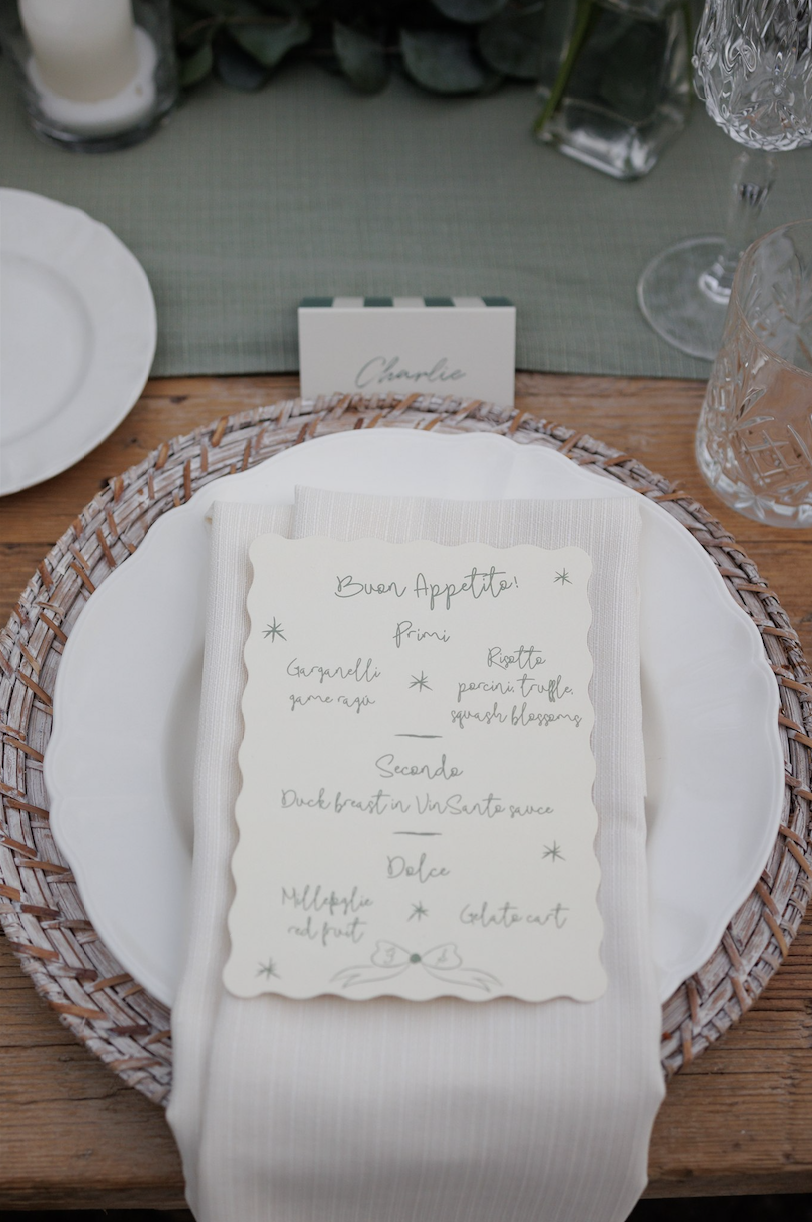 Charlie
Buon Appetito!
Primi
Garganelli
game ragù
Risotto
porcini, truffle,
squash blossoms
Secondo
Duck breast in VinSanto sauce
Dolce
Millefoglie
red fruit
Gelato cart